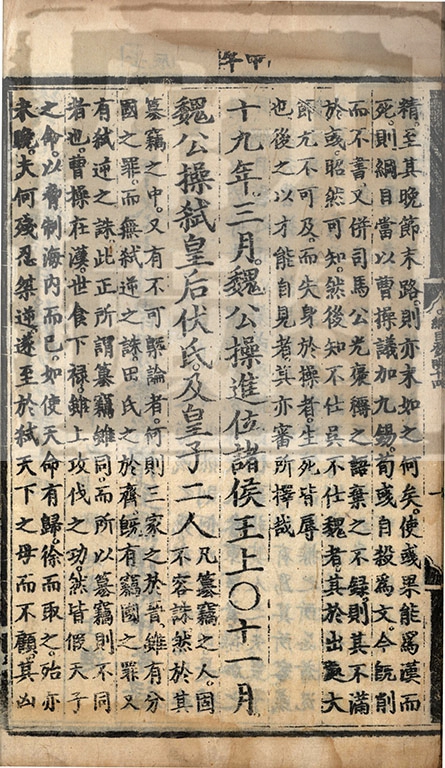 甲午
精至其晚節末路則亦末如之何矣。使彧果能爲漢而
死。則綱目當以曹操議加九錫。荀彧自殺爲文。今旣削
而不書。又併司馬公光褒稱之語棄之不録。則其不滿
於彧昭然可知。然後知不仕吳不仕魏者。其於出處大
節尤不可及。而失身於操者。生死皆辱
也後之以才能自見者其亦審所擇哉
十九年。三月。魏公操進位諸侯王上〇十一月
魏公操弑皇后伏氏。及皇子二人
凡簒竊之人。固
不容誅然於其
簒竊之中。又有不可槩論者。何則三家之於晉。雖有分
國之罪。而無弑逆之誅。田氏之於齊。旣有竊國之罪又
有弑逆之誅。此正所謂簒竊雖同。而所以簒竊則不同
者也。曹操在漢。世食下禄。雖上攻伐之功。然皆假天子
之命。以脅制海内而已。如使天命有歸。徐而取之。殆亦
未晚。夫何殘忍桀逆。遂至於弑天下之母而不顧。其凶